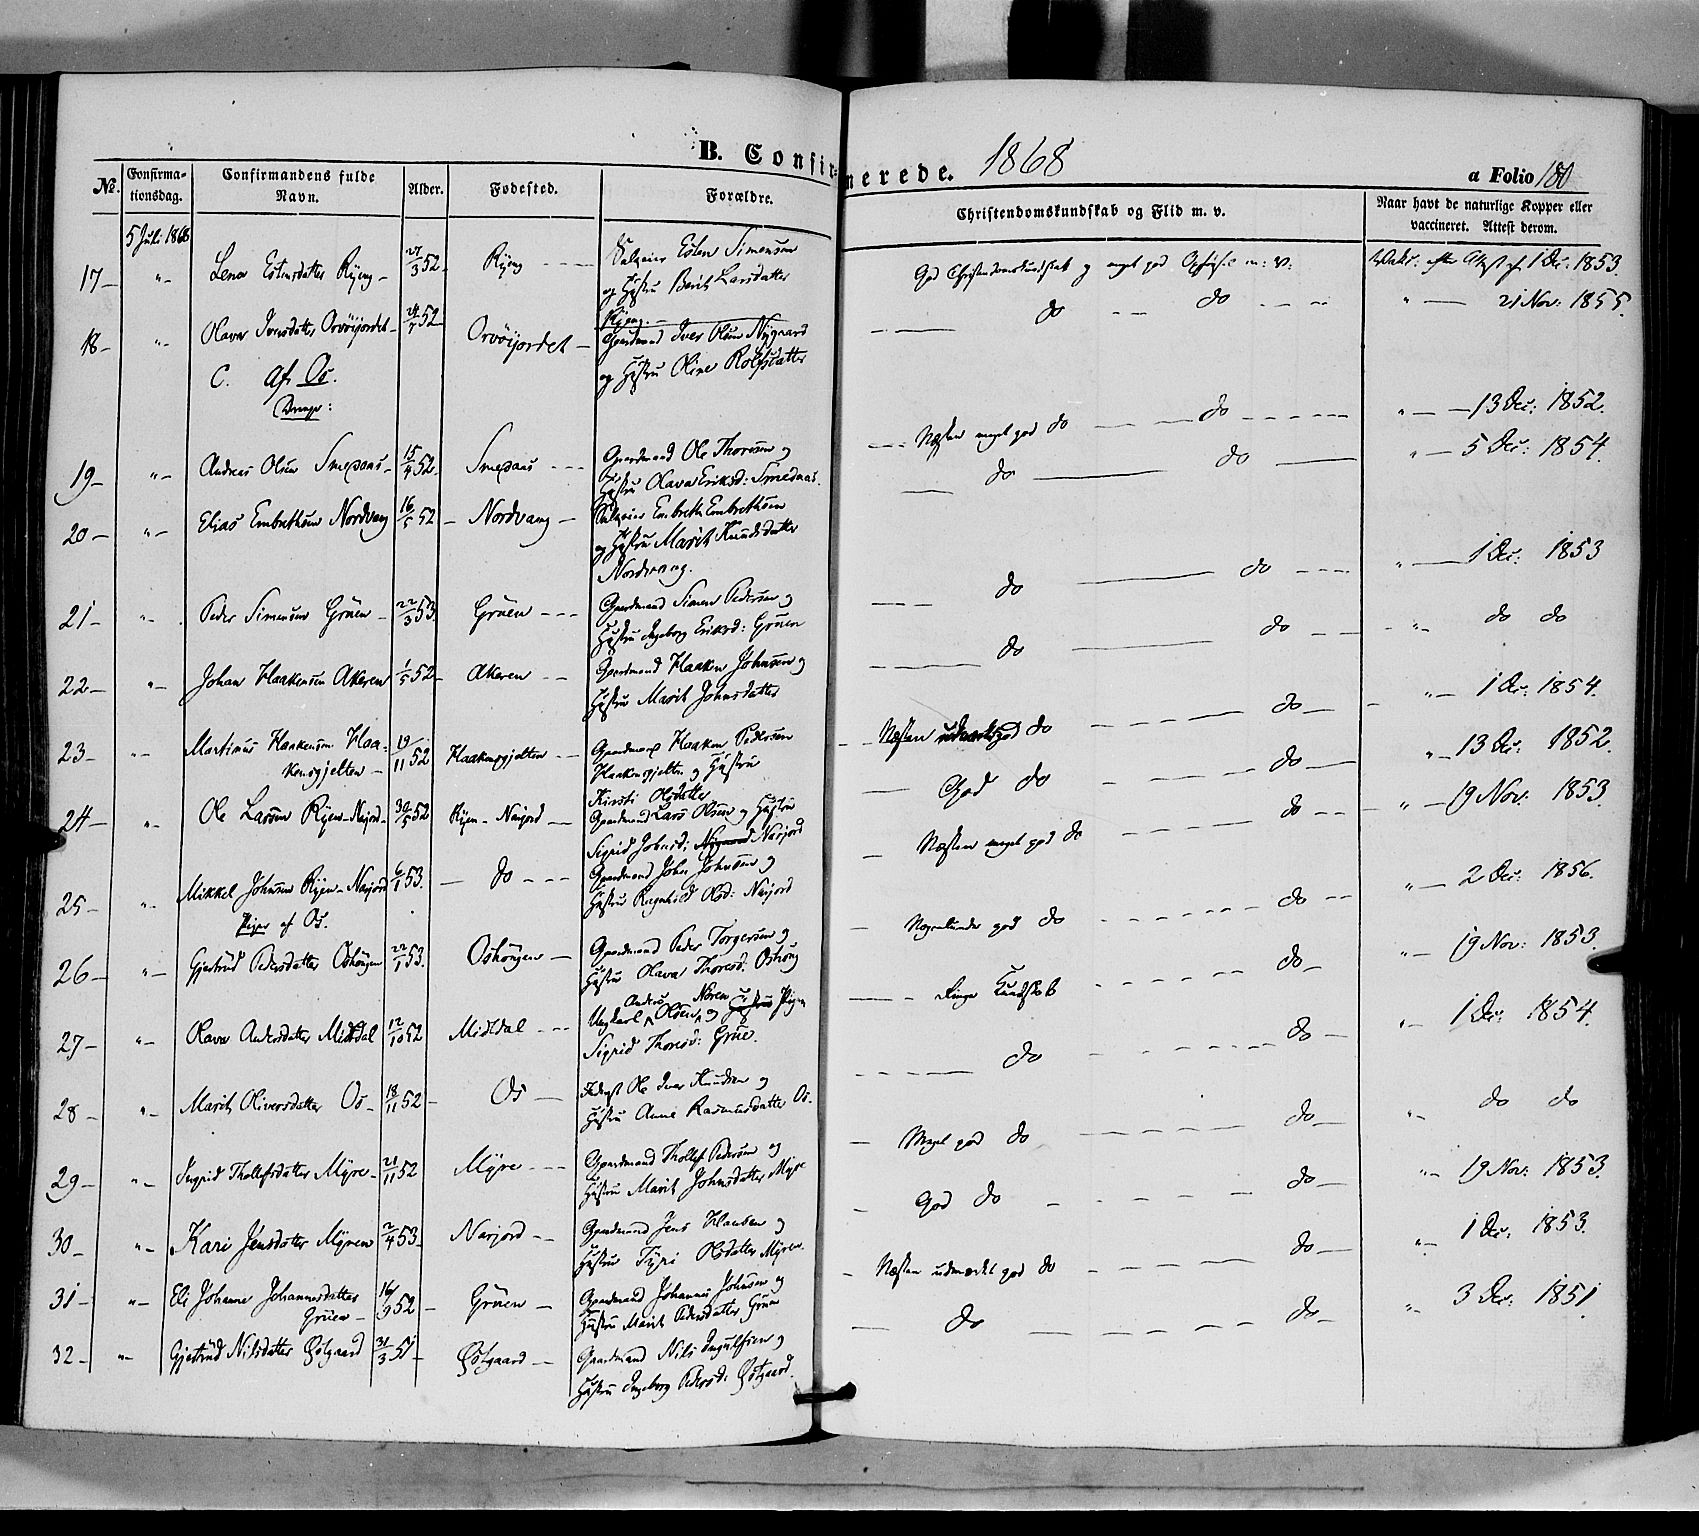 B. Confirmerede. 1868
a Folio 180
No. Confirmationsdag. Confirmandens fulde Navn. Alder. Fødested. Forældre. Christendomskundskab og Flid m. v. Naar havt de naturlige Kopper eller vaccineret. Attest derom.
5 Juli 1868
17 " Lena Estensdatter Ryeng 27/3 52 Ryeng Esten Simensen
og Hustru Berit Larsdatter
Ryeng.
God Christendomskundskab og meget god Opførsel m: v: Vakc. efter Attest af 1 Dec: 1853.
18 " Olava Iversdatter Orvöijordet 24/7 52 Orvöijordet Gaardmand Iver Olsen Nygaard
og Hustru Oline Rolfsdatter
do do " 21 Nov: 1855.
C. Af Os.
Drenge:
19 " Andreas Olsen Smednæs 15/4 52 Smednæs Gaardmand Ole Thoresen og
Hustru Olava Eriksd: Smednæs.
Næsten meget god do do " 13 Dec: 1852.
20 " Elias Embrethsen Nordvang 16/5 52 Nordvang Embreth Embrethsen
og Hustru Marit Knudsdatter
Nordvang.
do do " 5 Dec: 1854.
21 " Peder Simensen Grüen 22/3 53 Grüen Gaardmand Simen Pedersen og
Hustru Ingeborg Eriksd: Grüen
do do " 1 Dec: 1853
22 " Johan Haakensen Akeren 1/5 52 Akeren Gaardmand Haaken Johnsen og
Hustru Marit Johnsdatter
do do " do do
23 " Martinus Haakensen Haakensgjelten 19/11 52 Haakensgjelten Gaardmand Haaken Pedersen
Haakensgjelten og Hustru
Kirsti Olsdatter
Næsten god do do " 1 Dec: 1854.
24 " Ole Larsen Ryen-Narjord 30/5 52 Ryen-Narjord Gaardmand Lars Olsen og Hustru
Sigrid Johnsd: Narjord
God do do " 13 Dec: 1852.
25 " Mikkel Johnsen Ryen-Narjord 6/1 53. do Gaardmand John Johnsen og
Hustru Ragnhild Olsd: Narjord
Næsten meget god do do " 19 Nov: 1853.
Piger af Os.
26 " Gjertrud Pedersdatter Oshougen 22/1 53. Oshougen Gaardmand Peder Torgersen og
Hustru Olava Thoresd: Oshoug
Nogenlunde god do do " 2 Dec: 1856.
27 " Olava Andersdatter Midtdal 12/10 52 Midtdal Ungkarl Anders Olsen Noren og Pigen
Sigrid Thoresd: Grüe.
Ringe Kundskab do " 19 Nov: 1853.
28 " Marit Oliversdatter Os 18/11 52 Os Ole Iver Knudsen og
Hustru Anne Rasmusdatter Os.
do do " 1 Dec: 1854.
29 " Sigrid Thollefsdatter Myre 21/11 52 Myre Gaardmand Thollef Pedersen og
Hustru Marit Johnsdatter Myre
Meget god do do " do do
30 " Kari Jensdatter Myren 2/4 53 Narjord Gaardmand Jens Hansen og
Hustru Tyri Olsdatter Myren.
God do do " 19 Nov: 1853.
31 " Eli Johanne Johannesdatter Grüen 16/9 52 Grüen Gaardmand Johannes Johnsen og
Hustru Marit Pedersdatter Grüen
Næsten udmærket god do do " 1 Dec: 1853.
32 " Gjertrud Nilsdatter Østgaard 31/3 51 Østgaard Gaardmand Nils Ingulfsen og
Hustru Ingeborg Pedersd: Østgaard.
do do " 3 Dec: 1851